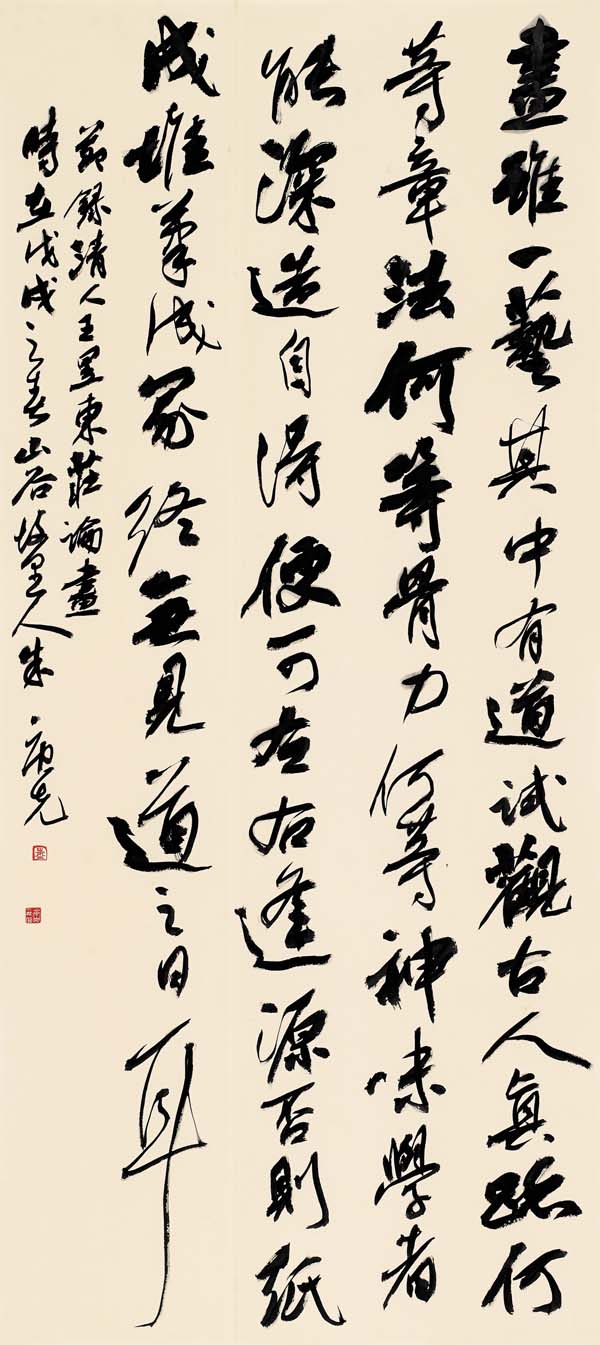 畫雖一藝其中有道試觀古人真跡何
等章法何等骨力何等神味學者
能深造自得便可左右逢源否則紙
成堆筆成冢終無見道之日耳
節錄清人王昱東莊論畫
時在戊戌之春山谷故里人朱